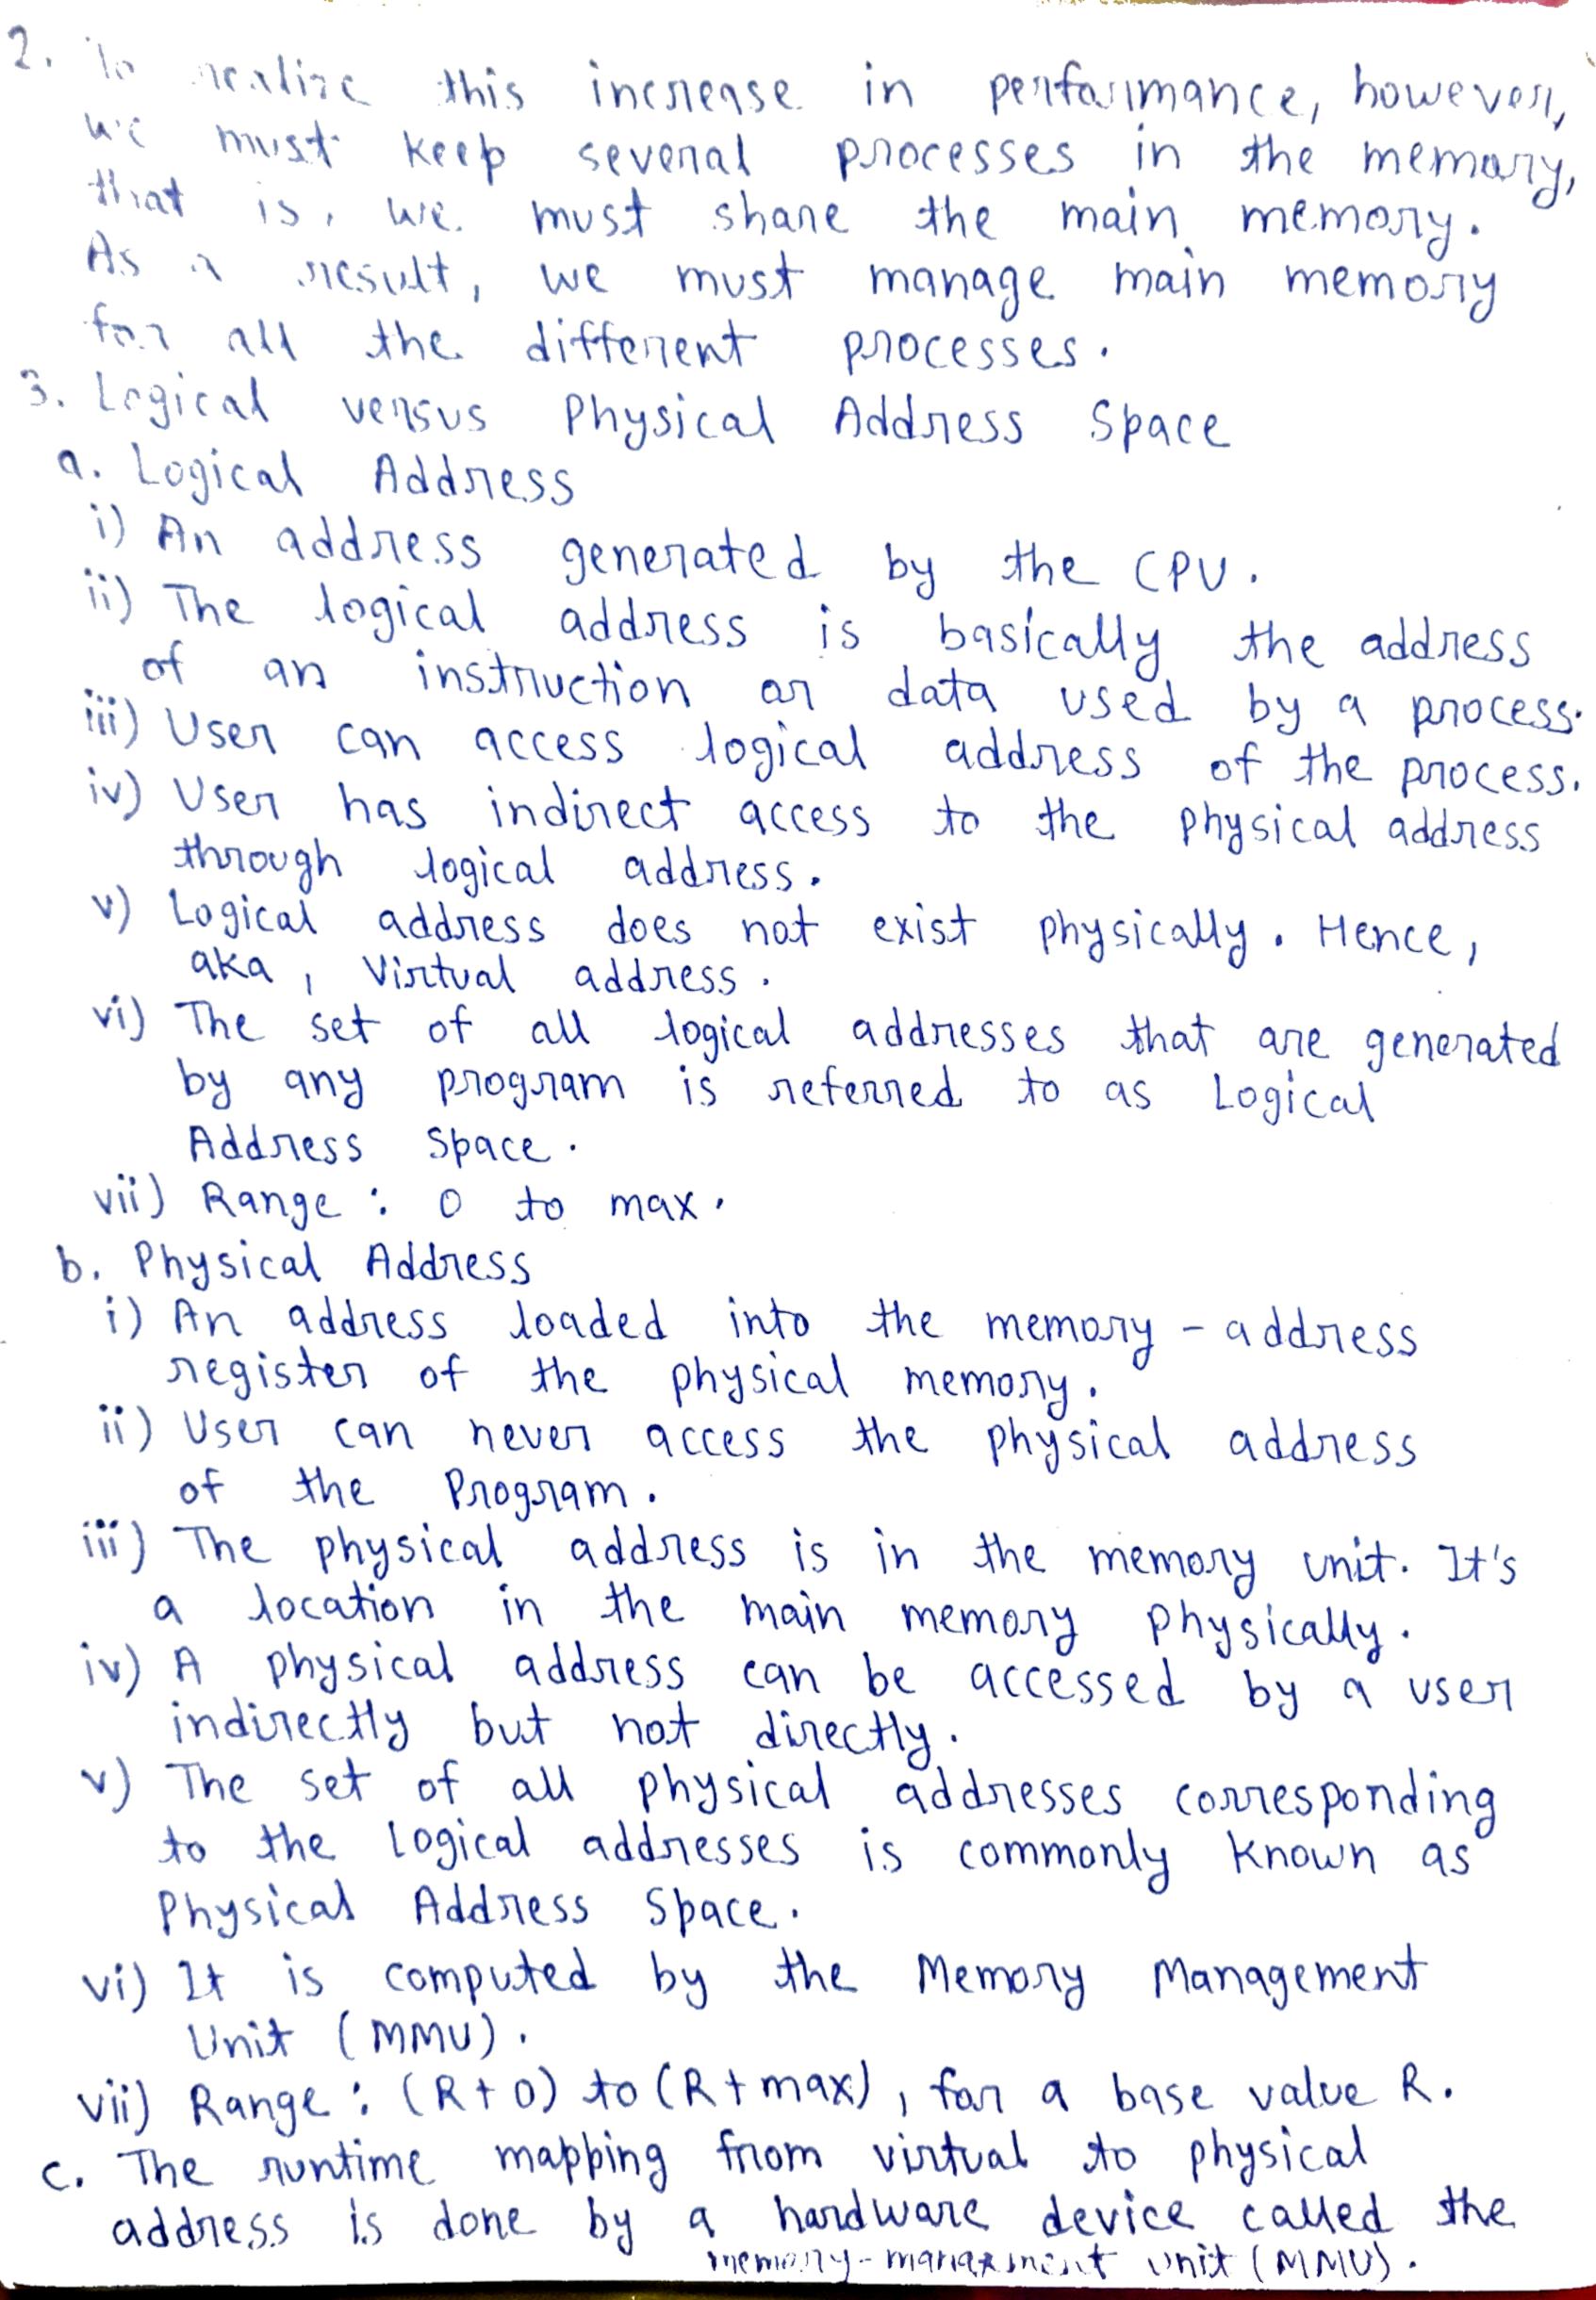 2. To realize this increase in performance, however,
we must keep several processes in the memory,
that is, we must share the main memory.
As a result, we must manage main memory
for all the different processes.
3. Logical versus Physical Address Space
a. Logical Address
i) An address generated by the CPU.
ii) The logical address is basically the address
of an instruction or data used by a process.
iii) User can access logical address of the process.
iv) User has indirect access to the physical address
through logical address.
v) Logical address does not exist physically. Hence,
aka, Virtual address.
vi) The set of all logical addresses that are generated
by any program is referred to as Logical
Address Space.
vii) Range : 0 to max.
b. Physical Address
i) An address loaded into the memory-address
register of the physical memory.
ii) User can never access the physical address
of the Program.
iii) The physical address is in the memory unit. It's
a location in the main memory physically.
iv) A physical address can be accessed by a user
indirectly but not directly.
v) The set of all physical addresses corresponding
to the Logical addresses is commonly known as
Physical Address Space.
vi) It is computed by the Memory Management
Unit (MMU).
vii) Range : (R+0) to (R+max), for a base value R.
c. The runtime mapping from virtual to physical
address is done by a hardware device called the
memory-management unit (MMU).